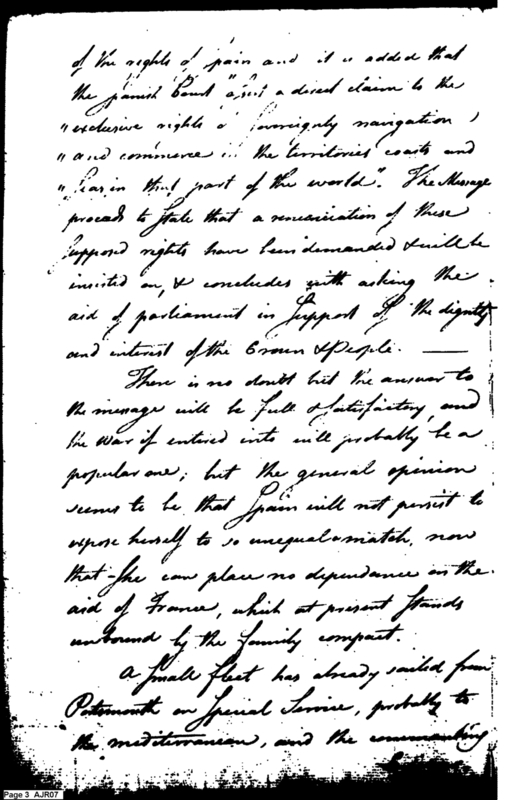 of the rights of Spain and it is added that
the Spanish Court "assert a direct claim to the
"exclusive rights of Sovereignty navigation
"and commerce in the territories coasts and
"Seas in that part of the world". The Message
proceeds to State that a renunciation of these
Supposed rights have been demanded & will be
insisted on, & concludes with asking the
aid of parliament in Support of the dignity
and interest of the Crown & People. —
There is no doubt but the answer to
the message will be full & Satisfactory, and
the War if entered into will probably be a
popular one; but the general opinion
seems to be that Spain will not persist to
expose herself to so unequal a match, now
that She can place no dependance on the
aid of France, which at present Stands
unbound by the family compact.
A Small fleet has already sailed from
Portsmouth on Special Service, probably to
the mediterranean, and the commanding
Page 3 AJR07